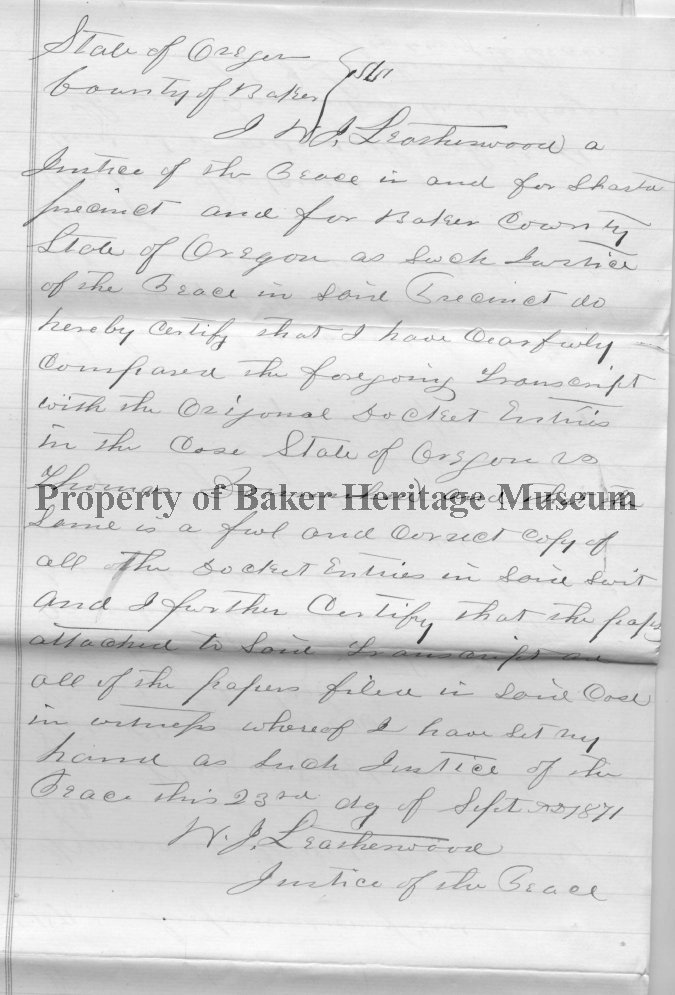 State of Oregon
County of Baker } ss
I W. J. Leatherwood a
Justice of the Peace in and for Shasta
precinct and for Baker County
State of Oregon as such Justice
of the Peace in said Precinct do
hereby certify that I have
compared the foregoing Transcript
with the Orijonal Docket Entries
in the Case State of Oregon vs
Thomas and that the
Property of Baker Heritage Museum
Same is a ful and correct copy of
all the Docket Entries in said suit
and I further Certify that the papers
attached to said Transcript are
all of the papers filed in said Case
in witness whereof I have set my
hand as such Justice of the
Peace this 23rd dy of Sept AD 1871
W. J. Leatherwood
Justice of the Peace